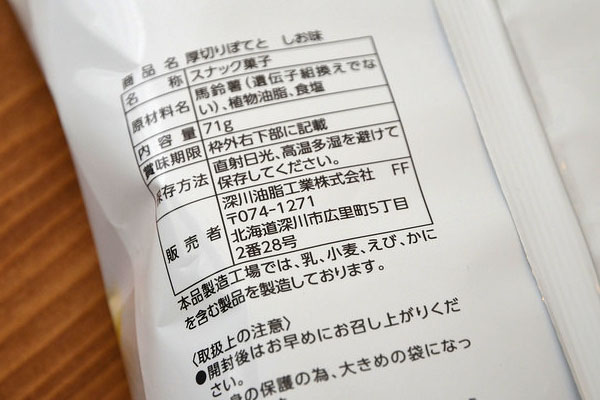 商品名 厚切りぽてと しお味
名称 スナック菓子
原材料名 馬鈴薯(遺伝子組換えでな
い)、植物油脂、食塩
内容量 71g
賞味期限 枠外右下部に記載
保存方法 直射日光、高温多湿を避けて
保存してください。
販売者 深川油脂工業株式会社 FF
〒074-1271
北海道深川市広里町5丁目
2番28号
本品製造工場では、乳、小麦、えび、かに
を含む製品を製造しております。
〈取扱上の注意〉
●開封後はお早めにお召し上がりくだ
さい。
身の保護の為、大きめの袋になっ